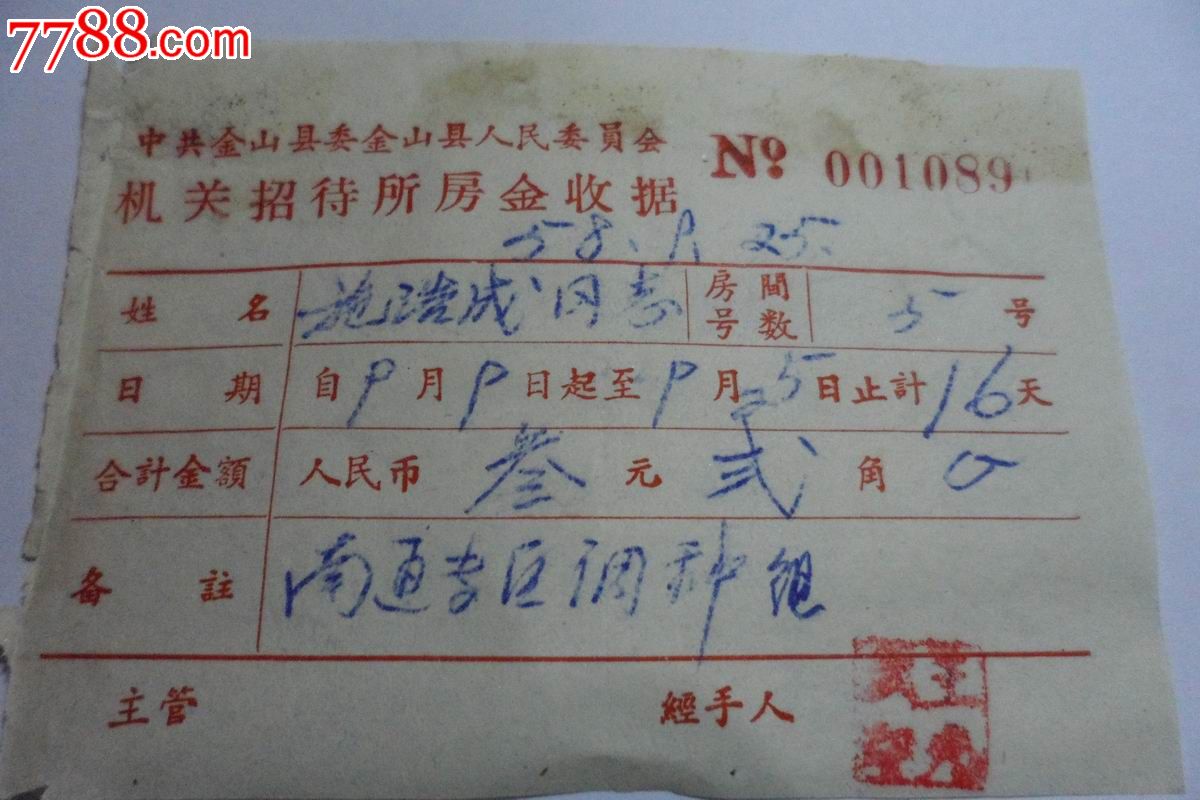 7788.com
中共金山县委金山县人民委員会
机关招待所房金收据 № 001089
58.9.25.
姓 名 施浩成同志 房間号数 5 号
日 期 自9月9日起至9月25日止計16天
合計金額 人民币 叁 元 弍 角 0
备 註 南通专区调种组
主管 經手人